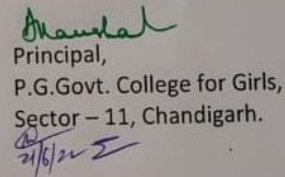 Principal,
P.G.Govt. College for Girls,
Sector – 11, Chandigarh.
21/6/22